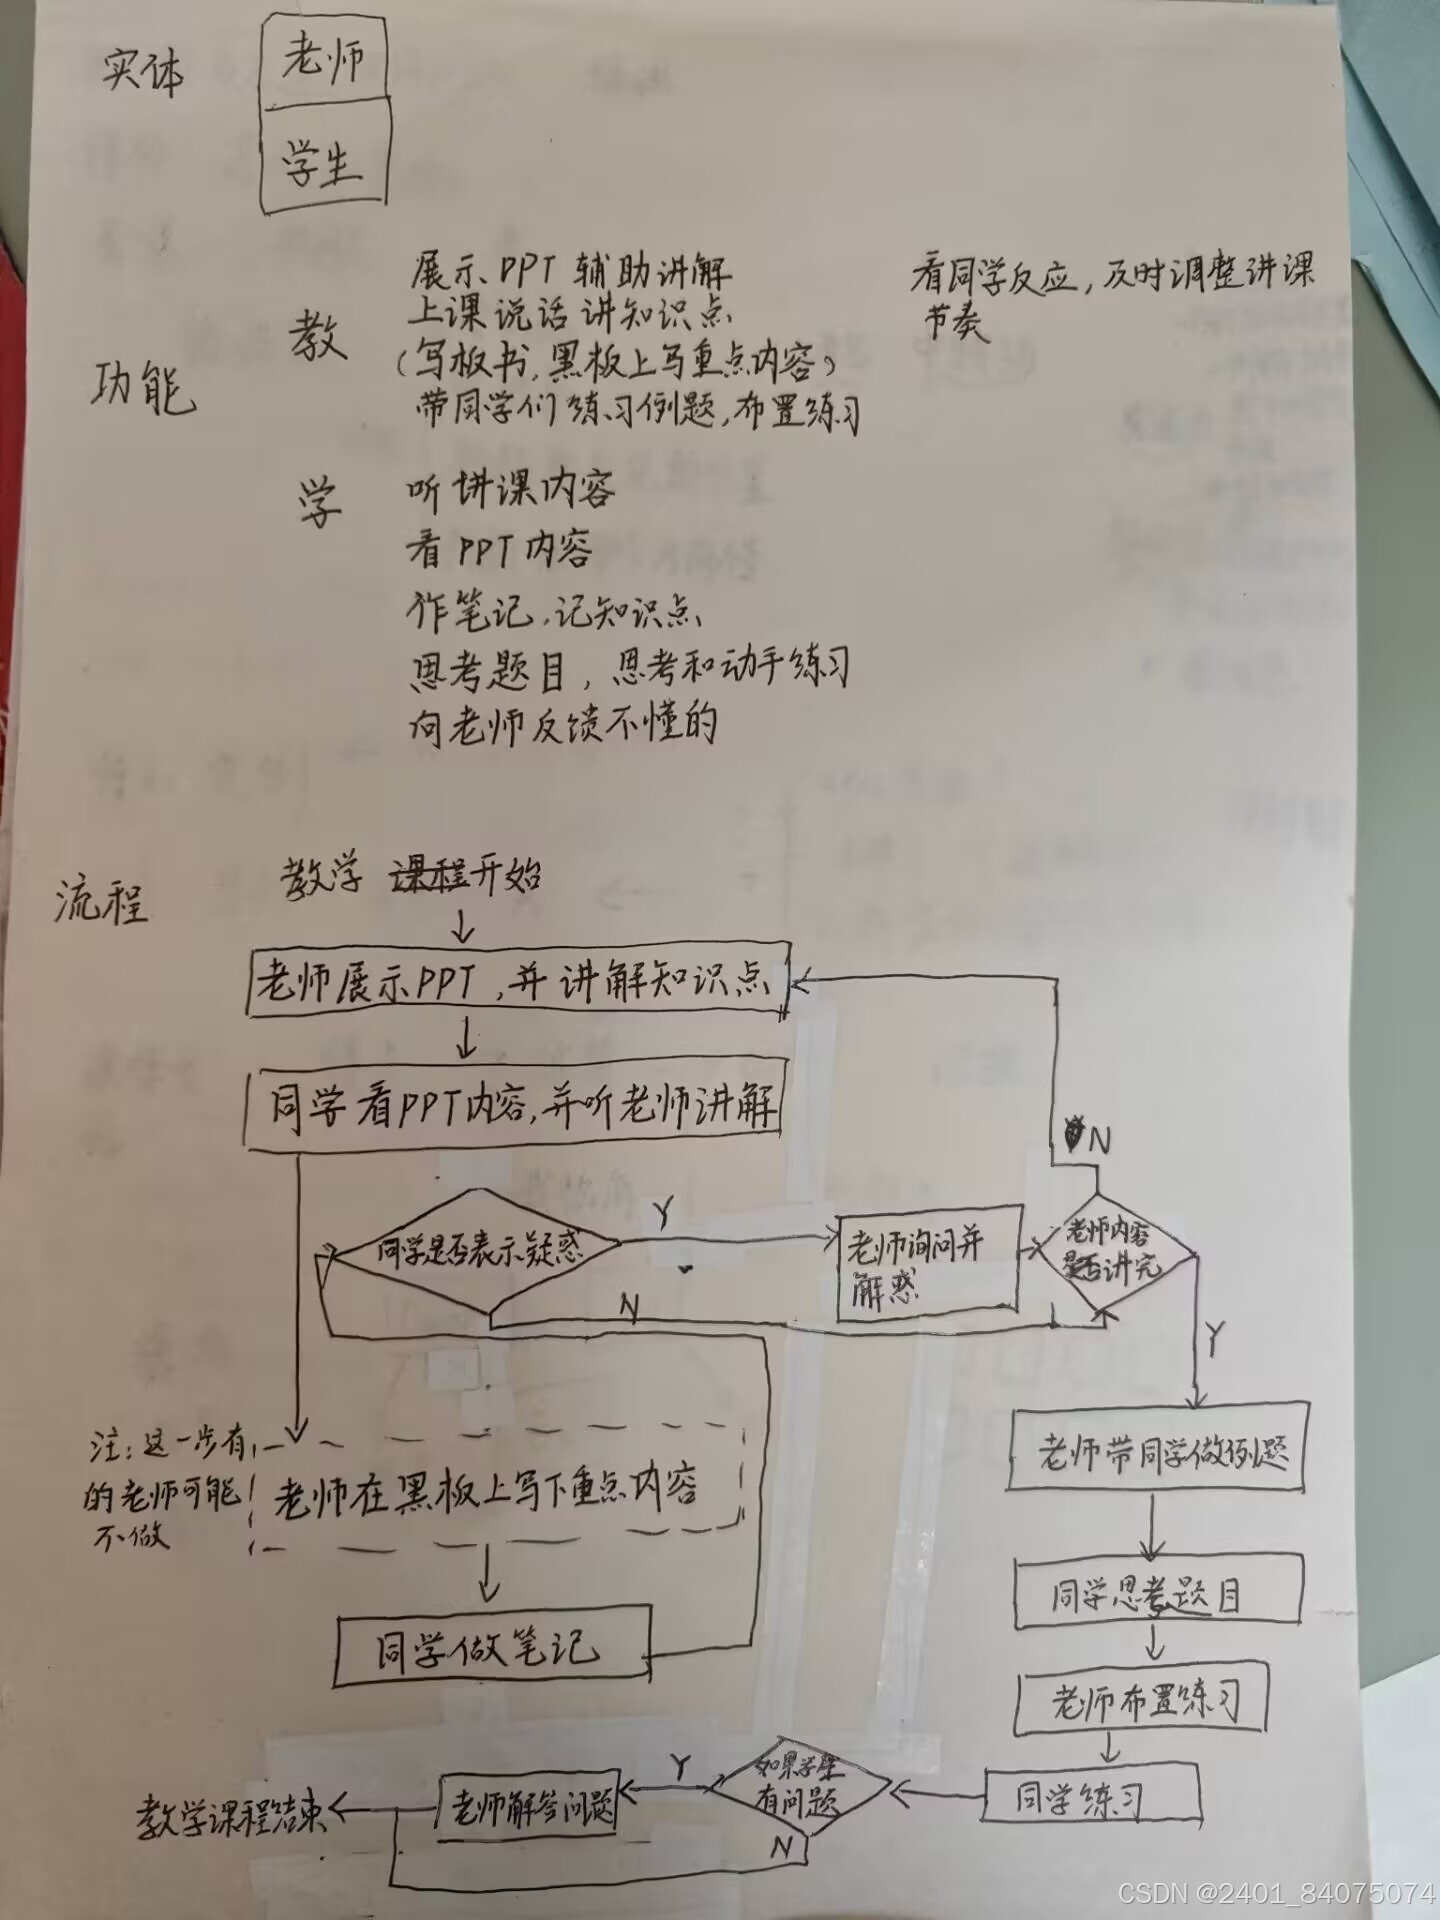 实体
老师
学生
功能
教
展示PPT 辅助讲解
上课说话讲知识点
(写板书,黑板上写重点内容)
带同学们练习例题,布置练习
看同学反应,及时调整讲课
节奏
学
听讲课内容
看PPT内容
作笔记,记知识点
思考题目,思考和动手练习
向老师反馈不懂的
流程
教学 课程开始
老师展示PPT,并讲解知识点
同学看PPT内容,并听老师讲解
同学是否表示疑惑
Y
N
老师询问并
解惑
老师内容
是否讲完
N
Y
注:这一步有
的老师可能
不做
老师在黑板上写下重点内容
同学做笔记
老师带同学做例题
同学思考题目
老师布置练习
同学练习
如果学生
有问题
Y
N
老师解答问题
教学课程结束
CSDN @2401_84075074